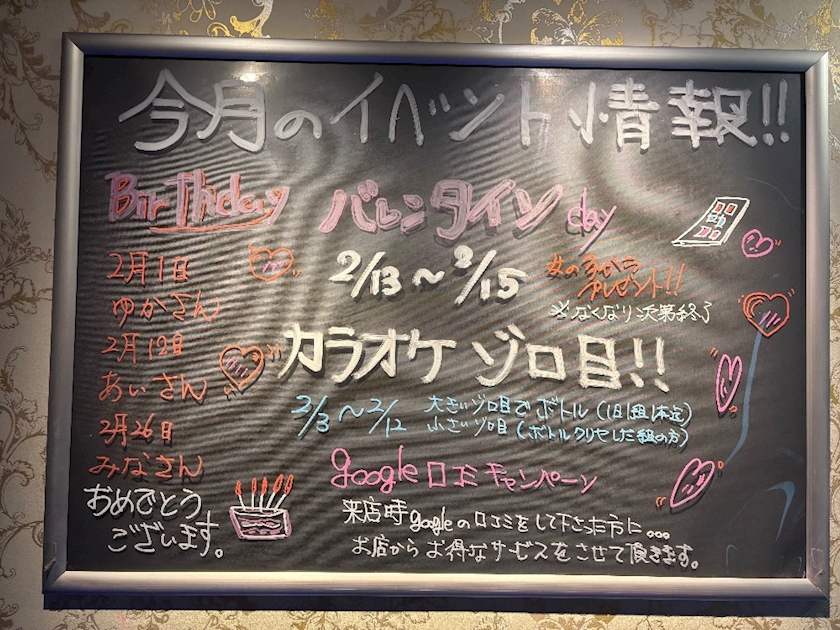 今月のイベント情報!!
Birthday
2月1日
ゆかさん
2月12日
あいさん
2月26日
みなさん
おめでとう
ございます。
バレンタイン day
2/13〜2/15
女の子から
プレゼント!!
※なくなり次第終了
カラオケ ゾロ目!!
2/3〜2/12
大きいゾロ目でボトル(1日1組1本迄)
小さいゾロ目(ボトルクリアした組の方)
google口コミキャンペーン
来店時googleの口コミをして下さった方に...
お店からお得なサービスをさせて頂きます。